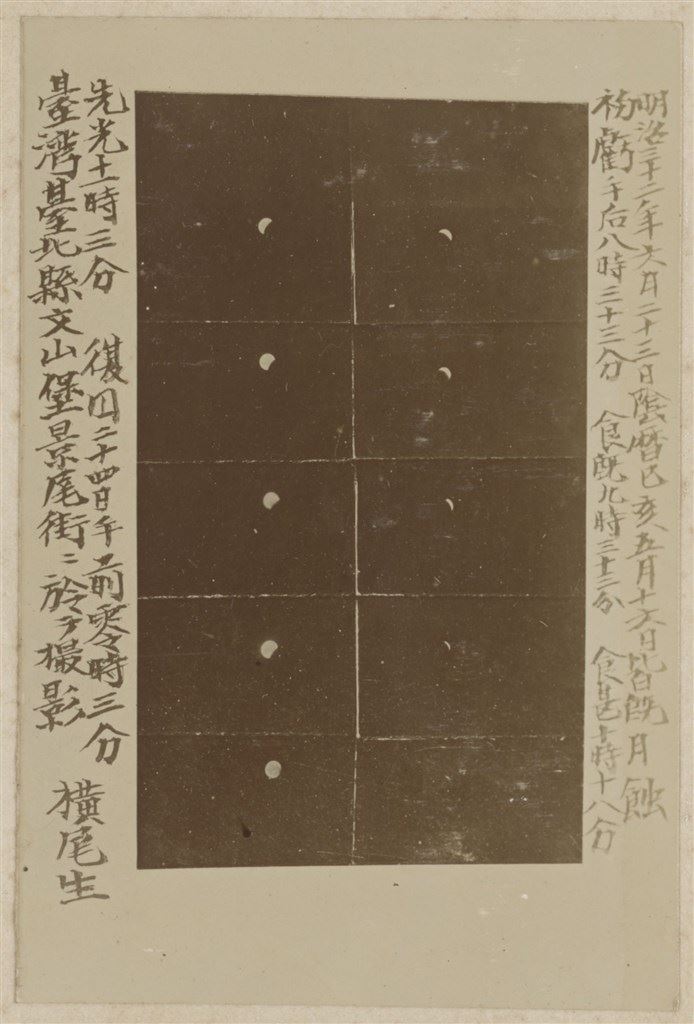 明治三十二年六月二十三日陰暦己亥五月十六日皆既月蝕
初虧午后八時三十三分　食既九時三十三分　食甚十時十八分
先光十一時三分　復円二十四日午前零時三分
臺灣臺北縣文山堡景尾街ニ於テ撮影
橫尾生